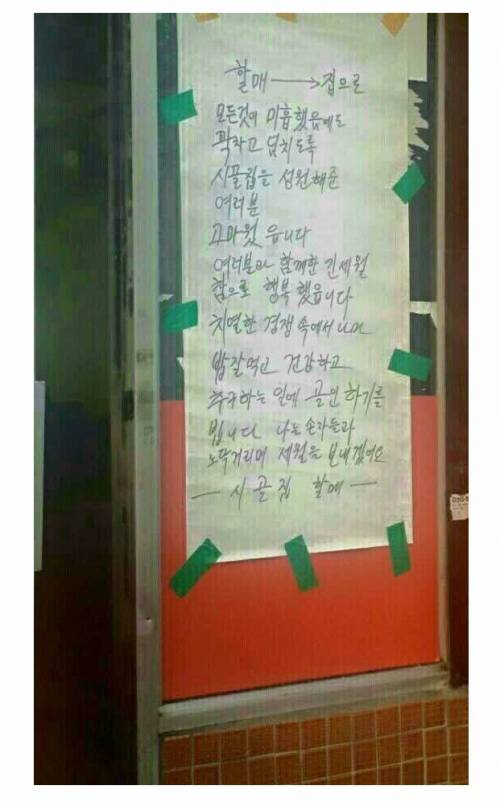 할매 → 집으로
모든것이 미흡했음에도
꽉차고 넘치도록
시골집을 성원해준
여러분
고마웠읍니다
여러분과 함께한 긴세월
참으로 행복했읍니다
치열한 경쟁 속에서
밥잘먹고 건강하고
추구하는 일에 골인 하기를
빕니다 나는 손자들과
노닥거리며 세월을 보내겠어요
— 시골집 할매 —